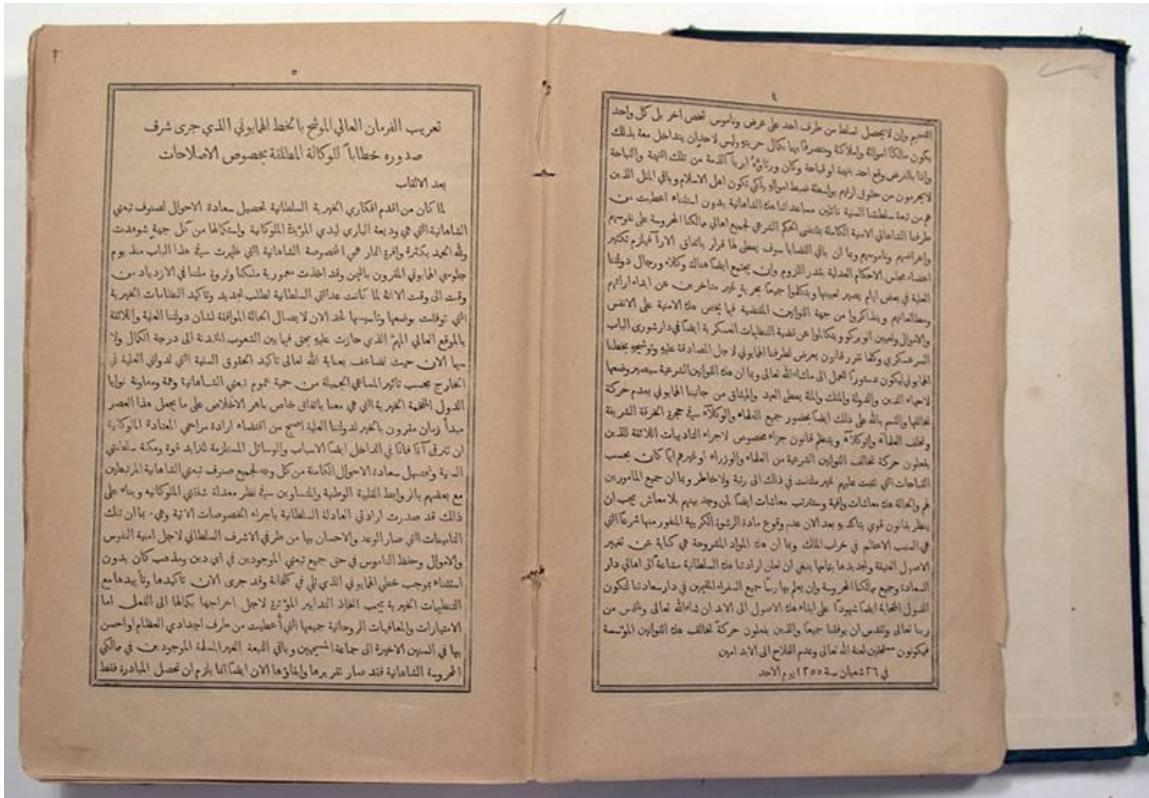 ٤
التسيم وان لا يحصل تسلط من طرف احد على عرض وناموس شخص اخر بل كل واحد
يكون مالكًا اموالهُ واملاكهُ ومتصرفًا بها بكمال حريتهِ وليس لاحد ان يتداخل معهُ بذلك
واذا بالفرض وقع احد بتهمة او قباحة وكان ورثاؤُهُ ابرياً الذمة من تلك التهمة والقباحة
لا يحرمون من حقوق ارثهم بواسطة ضبط اموالهِ ولكي تكون اهل الاسلام وباقي الملل الذين
هم من تبعة سلطتنا السنية نائلين مساعداتنا هذه الشاهانية بدون استثناء اعطيت من
طرفنا الشاهاني الامنية الكاملة بمقتضى الحكم الشرعي لجميع اهالي ممالكنا المحروسة على نفوسهم
واعراضهم وناموسهم وبما ان باقي القضايا سوف يعطى لها قرار باتفاق الارآ فيلزم تكثير
اعضاء مجلس الاحكام العدلية بقدر اللزوم وان يجتمع ايضًا هناك وكلاء ورجال دولتنا
العلية في بعض ايام يصير تعيينها ويتكلموا جميعًا بحرية غير متاخرين عن ابداء ارائهم
ومطالعاتهم ويتذاكروا من جهة القوانين المقتضية فيما يخص هذه الامنية على الانفس
والاموال وتعيين الويركو ويتكالموا عن قضية التنظيمات العسكرية ايضًا في دار شورى الباب
السرعسكري وكلما تقرر قانون يعرض لطرفنا الهمايوني لاجل المصادقة عليهِ وتوشيحهِ بخطنا
الهمايوني ليكون دستورًا للعمل الى ماشاء الله تعالى وبما ان هذه القوانين الشرعية سيصير وضعها
لاحياء الدين والدولة والملك والملة يعطى العهد والميثاق من جانبنا الهمايوني بعدم حركة
تخالفها والقسم بالله على ذلك ايضًا بحضور جميع العلماء والوكلآء في حجرة الخرقة الشريفة
وتحلف العلمآء والوكلآء وينظم قانون جزاء مخصوص لاجراء التاديبات اللائقة للذين
يفعلون حركة تخالف القوانين الشرعية من العلماء والوزراء او غيرهم ايًا كان بحسب
القباحات التي تثبت عليهم غير ملتفت في ذلك الى رتبة ولا خاطر وبما ان جميع المامورين
لهم والحالة هذه معاشات وافية وستترتب معاشات ايضًا لمن وجد بينهم بلا معاش يجب ان
ينظر بقانون قوي يتاكد بهِ بعد الان عدم وقوع مادة الرشوة الكريهة المنفور منها شرعًا التي
هي السبب الاعظم في خراب الملك وبما ان هذه المواد المشروحة هي كناية عن تغيير
الاصول العتيقة وتجديدها بتمامها ينبغي ان تعلن ارادتنا هذه السلطانية مشاعة الى اهالي دار
السعادة وجميع ممالكنا المحروسة وان يعلم بها رسمًا جميع السفراء المقيمين في دار سعادتنا لتكون
الدول المتحابة ايضًا شهودًا على ابقاء هذه الاصول الى الابد ان شاءالله تعالى ونلتمس من
ربنا تعالى وتقدس ان يوفقنا جميعًا والذين يفعلون حركةً تخالف هذه القوانين المؤسسة
فيكونون مستحقين لعنة الله تعالى وعدم الفلاح الى الابد امين
في ٢٦ شعبان سنة ١٢٥٥ يوم الاحد
٥
تعريب الفرمان العالي الموشح بالخط الهمايوني الذي جرى شرف
صدوره خطاباً للوكالة المطلقة بخصوص الاصلاحات
بعد الالقاب
لما كان من اقدم افكاري الخيرية السلطانية تحصيل سعادة الاحوال لصنوف تبعتي
الشاهانية التي هي وديعة الباري ليدي المؤيدة الملوكانية واستكمالها من كل جهةٍ شوهدت
ولله الحمد بكثرة وافرة اثمار همي المخصوصة الشاهانية التي ظهرت في هذا الباب منذ يوم
جلوسي الهمايوني المقرون باليمن وقد اخذت معمورية ملكنا وثروة ملتنا في الازدياد من
وقت الى وقت الا انهُ لما كانت عدالتي السلطانية تطلب تجديد وتاكيد النظامات الخيرية
التي توفقت بوضعها وتاسيسها لحد الان لايصال الحالة الموافقة لشان دولتنا العلية واللائقة
بالموقع العالي المهمّ الذي حازت عليهِ بحق فيما بين الشعوب المتمدنة الى درجة الكمال ولا
سيما الان حيث تضاعف بعناية الله تعالى تاكيد الحقوق السنية التي لدولتي العلية في
الخارج بحسب تاثير المساعي الجميلة من حمية عموم تبعتي الشاهانية وهمة ومعاونة نوايا
الدول المفخمة الخيرية التي هي معنا باتفاق خاص باهر الاخلاص على ما يجعل هذا العصر
مبدأ زمان مقرون بالخير لدولتنا العلية اصبح من اقتضاء ارادة مراحمي المعتادة الملوكانية
ان تترقى آنًا فآنًا في الداخل ايضًا الاسباب والوسائل المستلزمة لتزايد قوة ومكنة سلطنتي
السنية وتحصيل سعادة الاحوال الكاملة من كل وجه لجميع صنوف تبعتي الشاهانية المرتبطين
مع بعضهم بالروابط القلبية الوطنية والمتساوين في نظر معدلة شفقتي الملوكانية وبناء على
ذلك قد صدرت ارادتي العادلة السلطانية باجراء الخصوصات الاتية وهي. بما ان تلك
التامينات التي صار الوعد والاحسان بها من طرفي الاشرف السلطاني لاجل امنية النفوس
والاموال وحفظ الناموس في حق جميع تبعتي الموجودين في اي دين ومذهب كان بدون
استثناء بموجب خطي الهمايوني الذي تلي في كلخانة وقد جرى الان تاكيدها وتاييدها مع
التنظيمات الخيرية يجب اتخاذ التدابير المؤثرة لاجل اخراجها بكمالها الى الفعل اما
الامتيازات والمعافيات الروحانية جميعها التي أعطيت من طرف اجدادي العظام او احسن
بها في السنين الاخيرة الى جماعة المسيحيين وباقي التبعة الغير المسلمة الموجودين في ممالكي
المحروسة الشاهانية فقد صار تقريرها وابقاؤها الان ايضًا انما يلزم ان تحصل المبادرة فقط